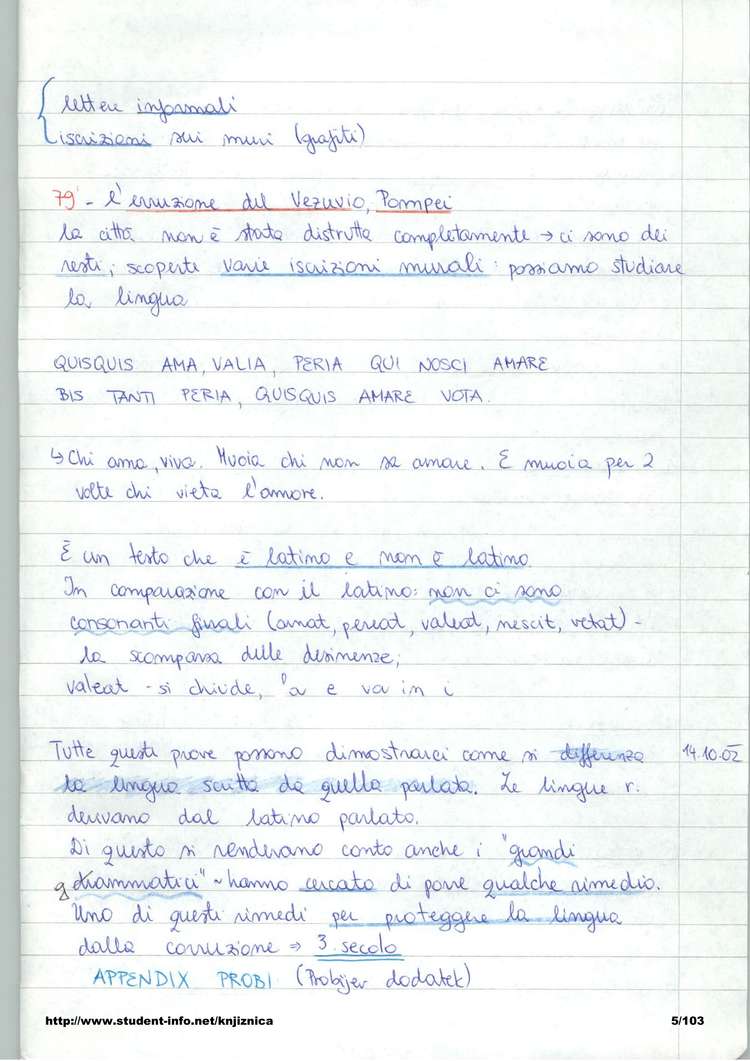 lettere informali
iscrizioni sui muri (grafiti)
79' - l'erruzione del Vezuvio, Pompei
la città non è stata distrutta completamente → ci sono dei
resti; scoperte varie iscrizioni murali: possiamo studiare
la lingua
QUISQUIS AMA, VALIA, PERIA QUI NOSCI AMARE
BIS TANTI PERIA, QUISQUIS AMARE VOTA.
↳ Chi ama, viva. Muoia chi non sa amare. E muoia per 2
volte chi vieta l'amore.
È un testo che è latino e non è latino.
In comparazione con il latino: non ci sono
consonanti finali (amat, pereat, valeat, nescit, vetat) -
la scomparsa delle desinenze;
valeat - si chiude, a e va in i
Tutte queste prove possono dimostrarci come si differenza 14.10.02
la lingua scritta da quella parlata. Le lingue r.
derivano dal latino parlato.
Di questo si rendevano conto anche i "grandi
grammatici" ~ hanno cercato di porre qualche rimedio.
Uno di questi rimedi per proteggere la lingua
dalla corruzione ⇒ 3. secolo
APPENDIX PROBI (Probijev dodatek)
http://www.student-info.net/knjiznica 5/103